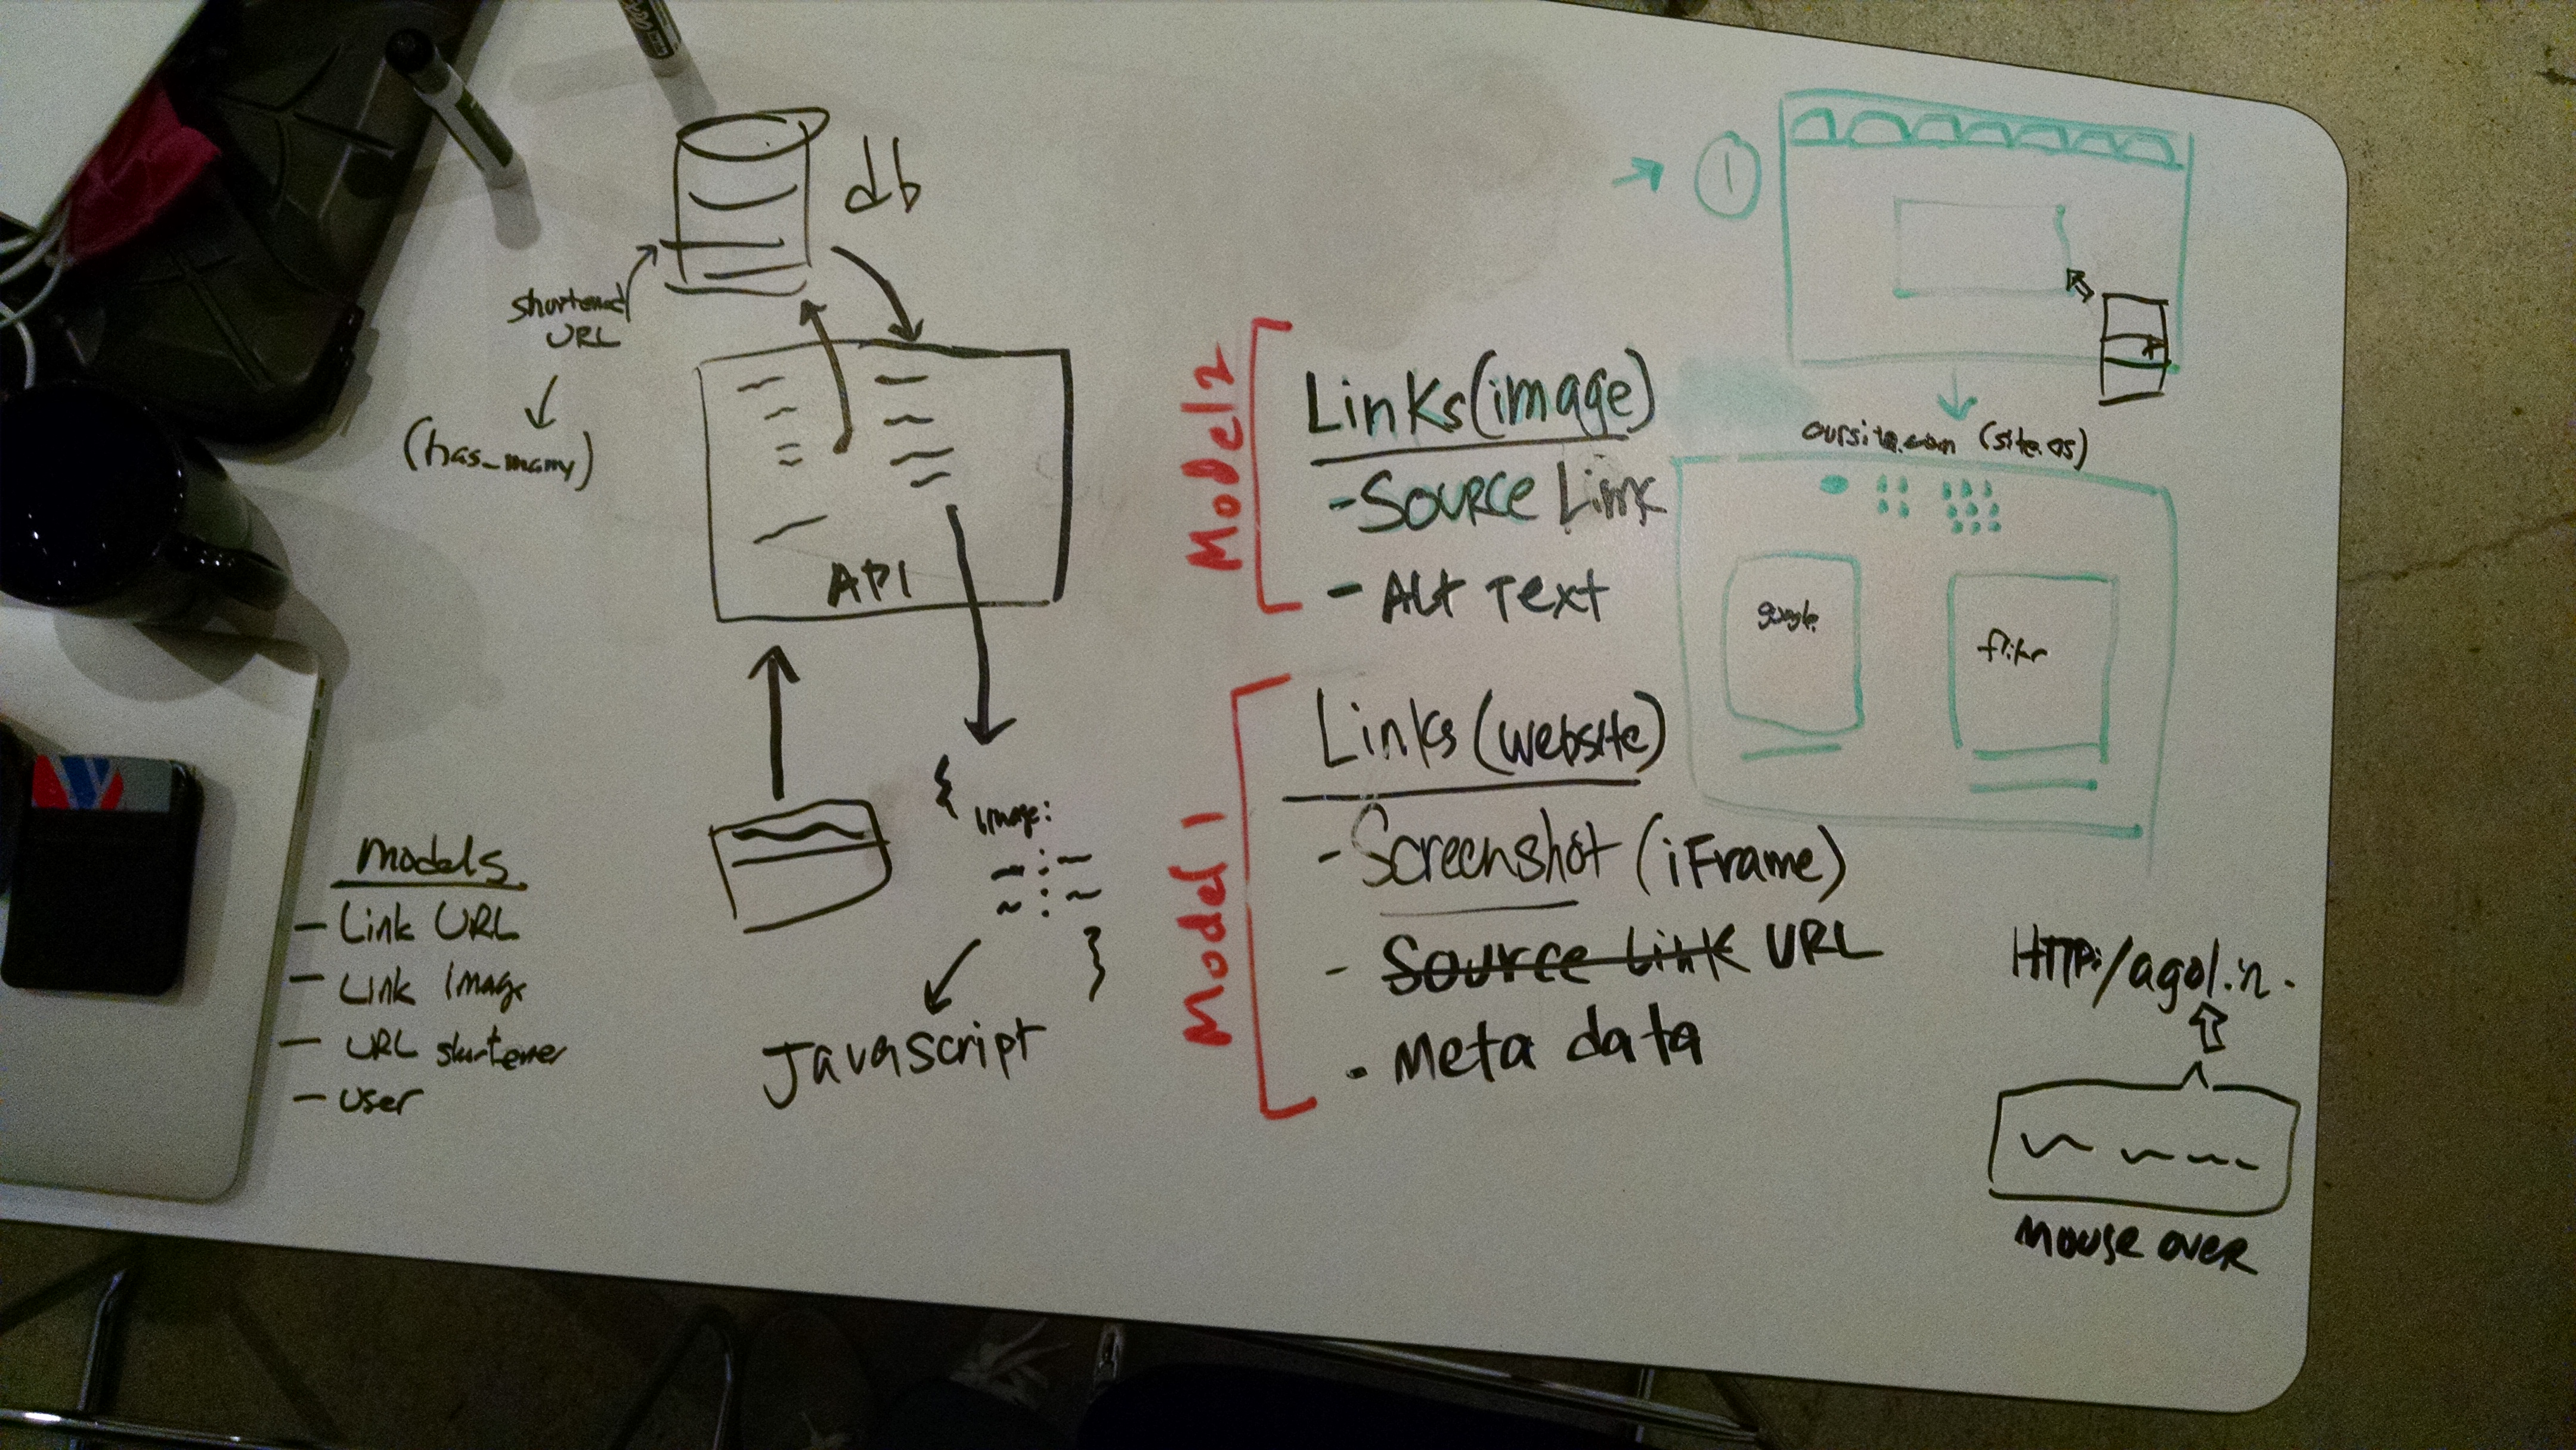 db
shortened
URL
(has_many)
API
{
image:
}
JavaScript
models
- Link URL
- Link image
- URL shortener
- user
Model 2
Links (image)
- Source Link
- Alt Text
Model 1
Links (website)
- Screenshot (iFrame)
- Source Link URL
- Meta data
1
oursite.com (site.os)
google
flikr
HTTP:/agol.in.
mouse over